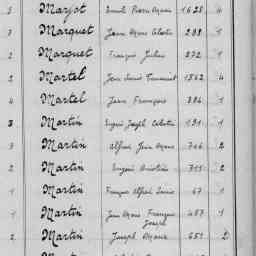 3 Marjot Pierre Marie 1628 4
3 Marquet Jean Marie 288 1
2 Marquet François Julien 272 1
2 Martel Jean Louis Toussaint 1562 4
4 Martel Jean François 884 1
3 Martin Eugène Joseph Célestin 191 1
3 Martin Alfred Jean Marie 746 2
2 Martin Eugène 711 2
1 Martin François Alfred Louis 67 1
1 Martin Jean Marie François Joseph 457 1
2 Martin Joseph Marie 651 2